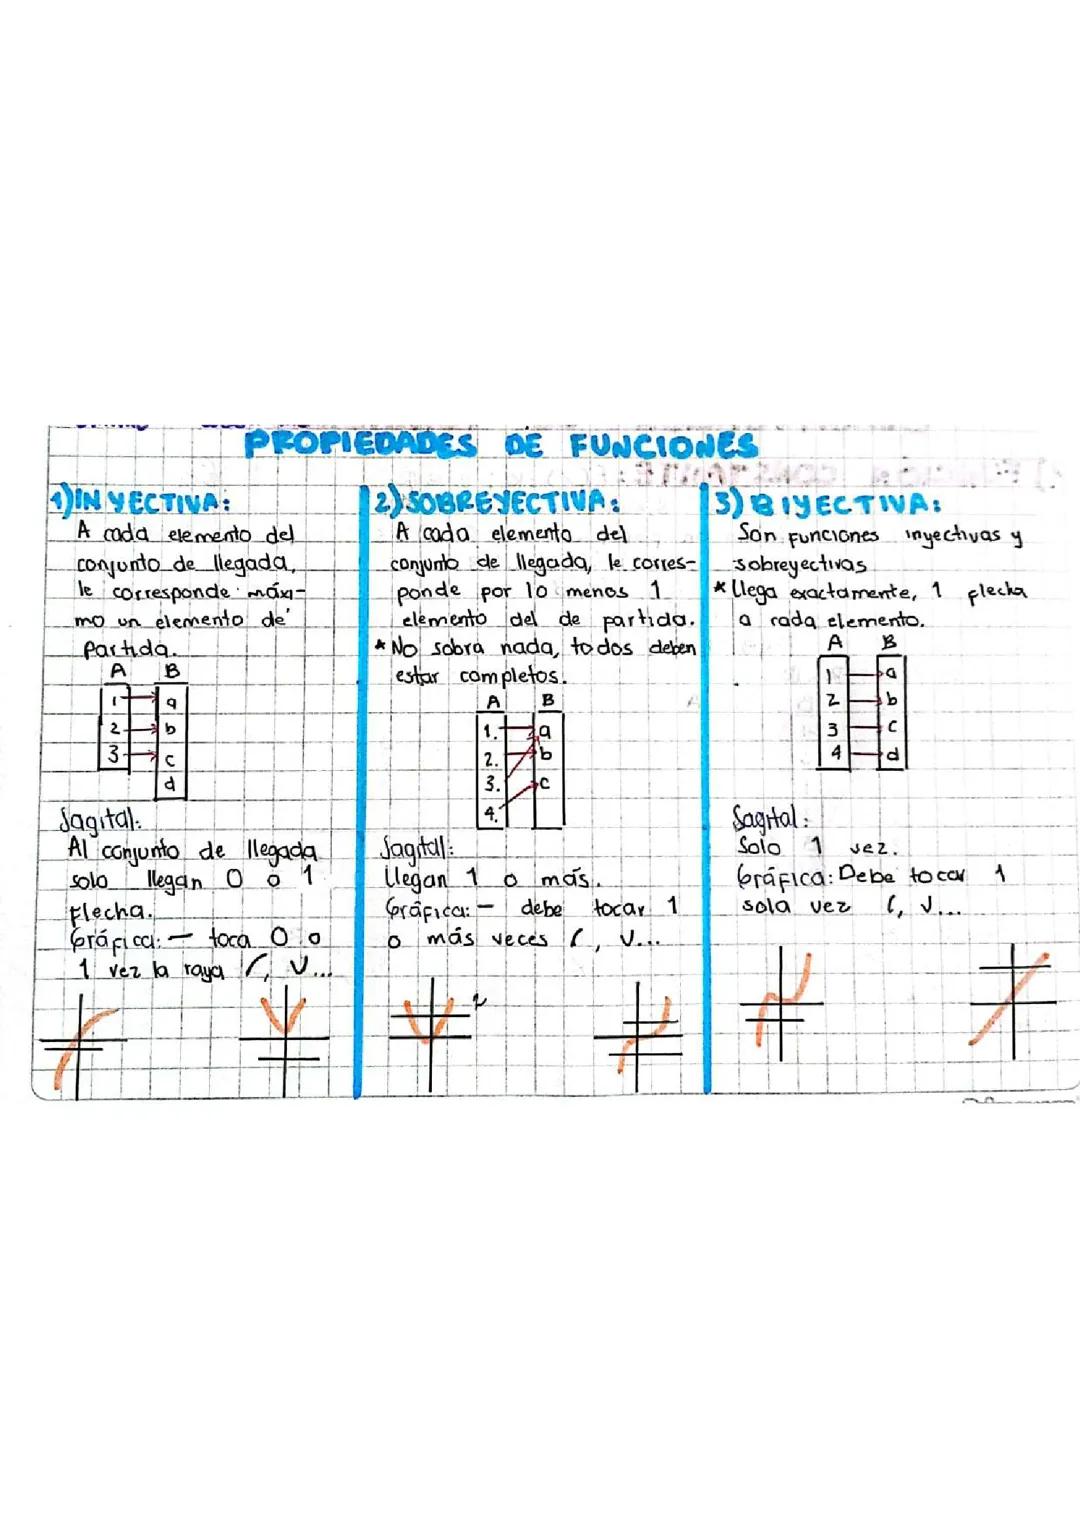 PROPIEDADES DE FUNCIONES
1) INYECTIVA:
A cada elemento del
conjunto de llegada,
le corresponde máxi-
mo un elemento de
Partida.
A B
1 a
2 b
3 c
d
Sagital:
Al conjunto de llegada
solo llegan 0 o 1
flecha.
Gráfica: — toca 0 o
1 vez la raya /, V...
2) SOBREYECTIVA:
A cada elemento del
conjunto de llegada, le corres-
ponde por lo menos 1
elemento del de partida.
* No sobra nada, todos deben
estar completos.
A B
1. a
2. b
3. c
4.
Sagital:
Llegan 1 o más.
Gráfica: — debe tocar 1
o más veces (, V...
3) BIYECTIVA:
Son funciones inyectivas y
sobreyectivas
* Llega exactamente, 1 flecha
a cada elemento.
A B
1 a
2 b
3 c
4 d
Sagital:
Solo 1 vez.
Gráfica: Debe tocar 1
sola vez (, V...